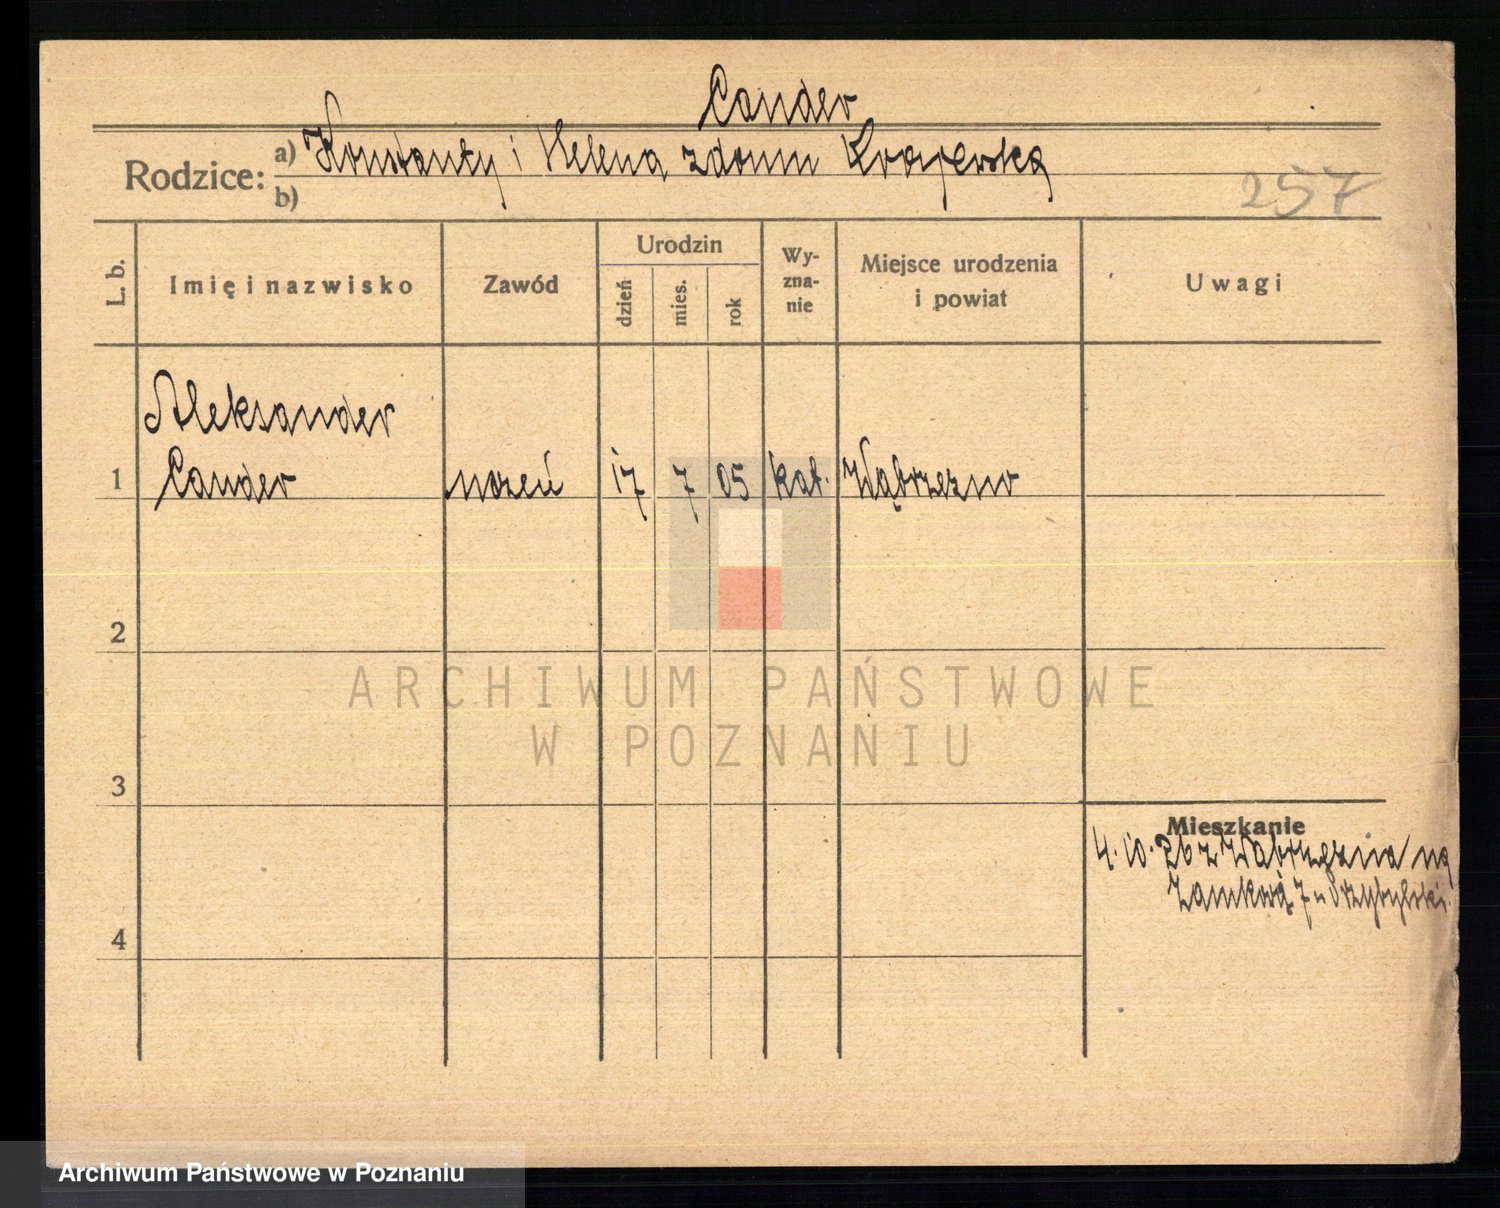 Cander
Rodzice: a) Konstanty i Helena zdomu Krajewska
b)
257
L. b.
Imię i nazwisko
Zawód
Urodzin
dzień
mies.
rok
Wy-
zna-
nie
Miejsce urodzenia
i powiat
Uwagi
Aleksander
1 Cander uczeń 17 7 05 kat. Wąbrzeźno
2
ARCHIWUM PAŃSTWOWE
W POZNANIU
3
Mieszkanie
4. 10. 26 z Wąbrzeźna na
Zamkową 7 u Przybylski
4
Archiwum Państwowe w Poznaniu